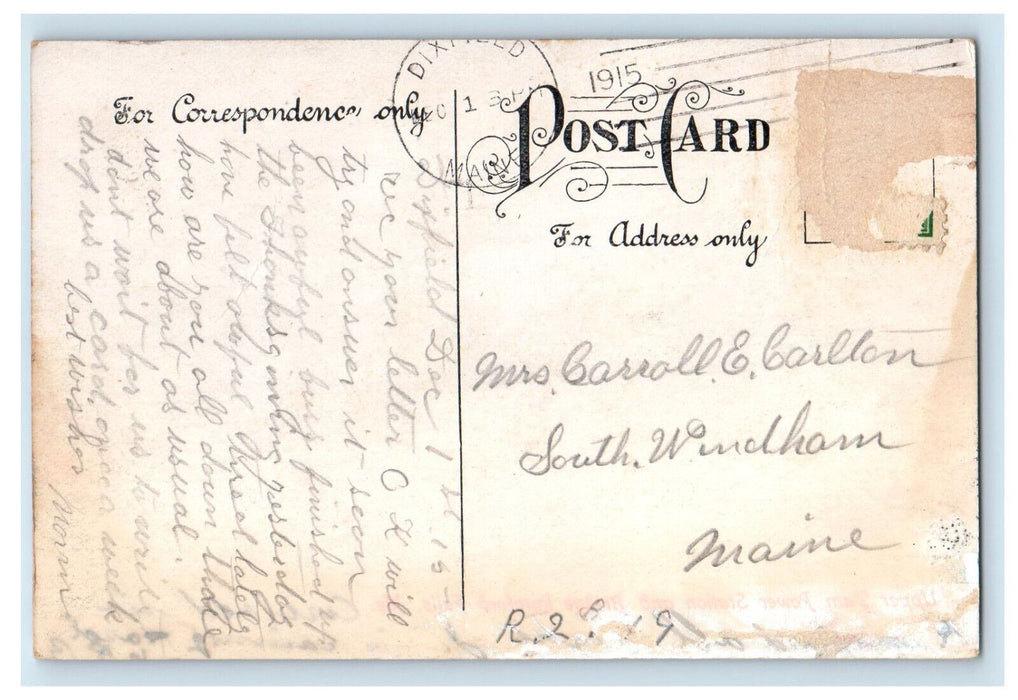 DIXFIELD
DEC 1 3 PM
1915
MAINE
For Correspondence only
POST CARD
For Address only
Dixfield Dec 1 st. 15-
rec your letter O K will
try and answer it soon
been awful busy finished up
the thanksgiving yesterday
have felt tired lately
how are you all down there
we are about as usual.
dont wait for us to write
drop us a card, once a week
best wishes
Mrs. Carroll. E. Carlton
South. Windham
Maine
R. 28. 19
Upper Dam Power Station and Bridge